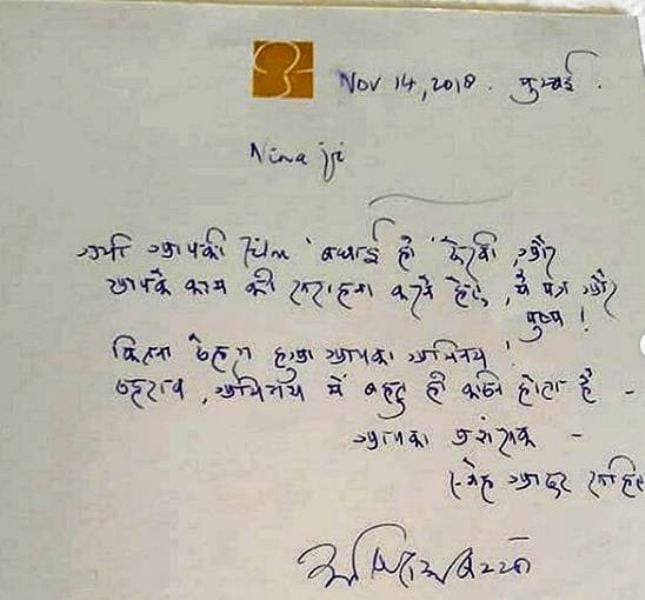 Nov 14, 2018. मुम्बई.
Nina ji
अभी आपकी film 'बधाई हो' देखी, और
आपके काम की सराहना करने हेतु, ये पत्र और
पुष्प!
कितना ठहरा हुआ आपका अभिनय!
ठहराव, अभिनय में बहुत ही कठिन होता है -
आपका प्रशंसक -
स्नेह आदर सहित
अमिताभ बच्चन